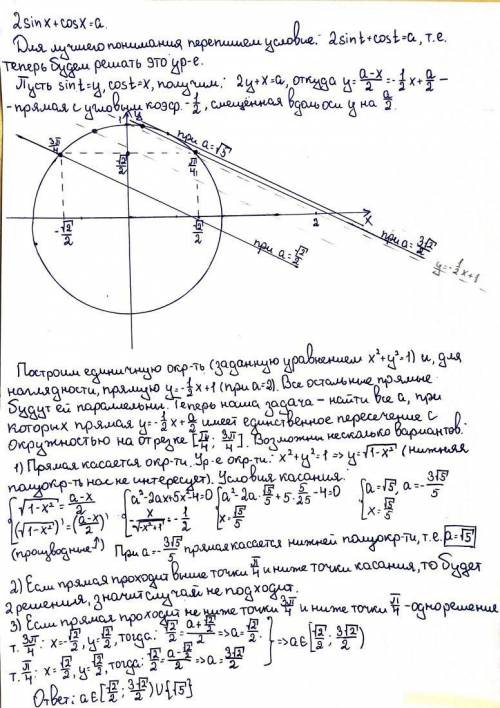 2sinx+cosx=a.
Для лучшего понимания перепишем условие: 2sint+cost=a, т.е.
теперь будем решать это ур-е.
Пусть sint=y, cost=x, получим: 2y+x=a, откуда y=\frac{a-x}{2}=-\frac{1}{2}x+\frac{a}{2} -
- прямая с угловым коэф. -\frac{1}{2}, смещённая вдоль оси y на \frac{a}{2}.
1
y
при a=√5
\frac{3π}{4}
\frac{√2}{2}
\frac{π}{4}
x
2
-\frac{√2}{2}
\frac{√2}{2}
при a=\frac{√2}{2}
при a=\frac{3√2}{2}
y=-\frac{1}{2}x+1
Построим единичную окр-ть (заданную уравнением x²+y²=1) и, для
наглядности, прямую y=-\frac{1}{2}x+1 (при a=2). Все остальные прямые
будут ей параллельны. Теперь наша задача - найти все a, при
которых прямая y=-\frac{1}{2}x+\frac{a}{2} имеет единственное пересечение с
окружностью на отрезке [\frac{π}{4}; \frac{3π}{4}]. Возможны несколько вариантов:
1) Прямая касается окр-ти. Ур-е окр-ти: x²+y²=1 => y=√(1-x²) (нижняя
полуокр-ть нас не интересует). Условия касания:
{√(1-x²)=\frac{a-x}{2} {a²-2ax+5x²-4=0 {a²-2a·\frac{√5}{5}+5·\frac{5}{25}-4=0 {a=√5, a=-\frac{3√5}{5}
{(√(1-x²))'=(\frac{a-x}{2})' {\frac{x}{√(-x²+1)}=-\frac{1}{2} {x=\frac{√5}{5} {x=\frac{√5}{5}
(производные!) При a=-\frac{3√5}{5} прямая касается нижней полуокр-ти, т.е. a=√5
2) Если прямая проходит выше точки \frac{π}{4} и ниже точки касания, то будет
2 решения, значит случай не подходит.
3) Если прямая проходит не ниже точки \frac{3π}{4} и ниже точки \frac{π}{4} - одно решение
т. \frac{3π}{4}: x=-\frac{√2}{2}, y=\frac{√2}{2}, тогда: \frac{√2}{2}=\frac{a+\frac{√2}{2}}{2} => a=\frac{√2}{2}.
т. \frac{π}{4}: x=\frac{√2}{2}, y=\frac{√2}{2}, тогда: \frac{√2}{2}=\frac{a-\frac{√2}{2}}{2} => a=\frac{3√2}{2} } => a∈[\frac{√2}{2}; \frac{3√2}{2})
Ответ: a∈[\frac{√2}{2}; \frac{3√2}{2})∪{√5}